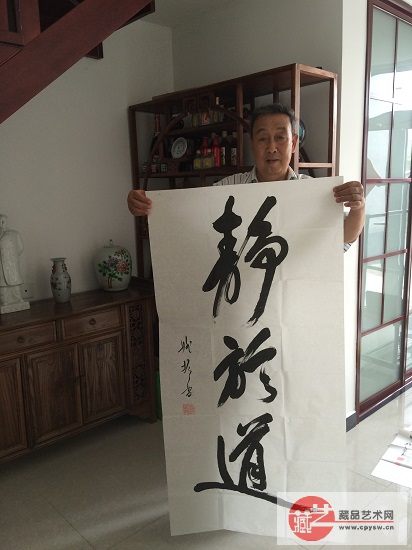 静於道
藏艺
藏品艺术网
www.cpysw.cn